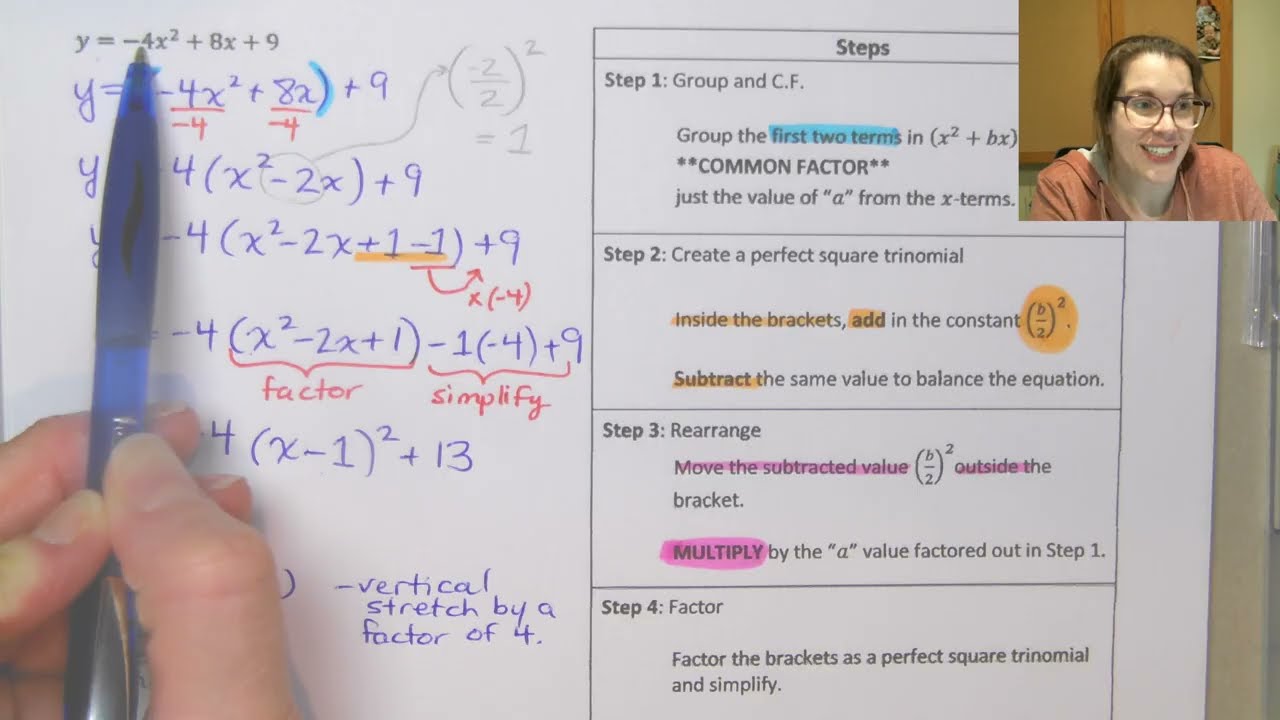 y = −4x² + 8x + 9
y = −4x² + 8x) + 9
−4 −4
(-2/2)²
= 1
y 4(x² − 2x) + 9
y −4(x² − 2x + 1 − 1) + 9
x(−4)
= −4(x² − 2x + 1) − 1(−4) + 9
factor simplify
4(x − 1)² + 13
) - vertical
stretch by a
factor of 4.
Steps
Step 1: Group and C.F.
Group the first two terms in (x² + bx)
**COMMON FACTOR**
just the value of “a” from the x-terms.
Step 2: Create a perfect square trinomial
Inside the brackets, add in the constant (b/2)².
Subtract the same value to balance the equation.
Step 3: Rearrange
Move the subtracted value (b/2)² outside the
bracket.
MULTIPLY by the “a” value factored out in Step 1.
Step 4: Factor
Factor the brackets as a perfect square trinomial
and simplify.